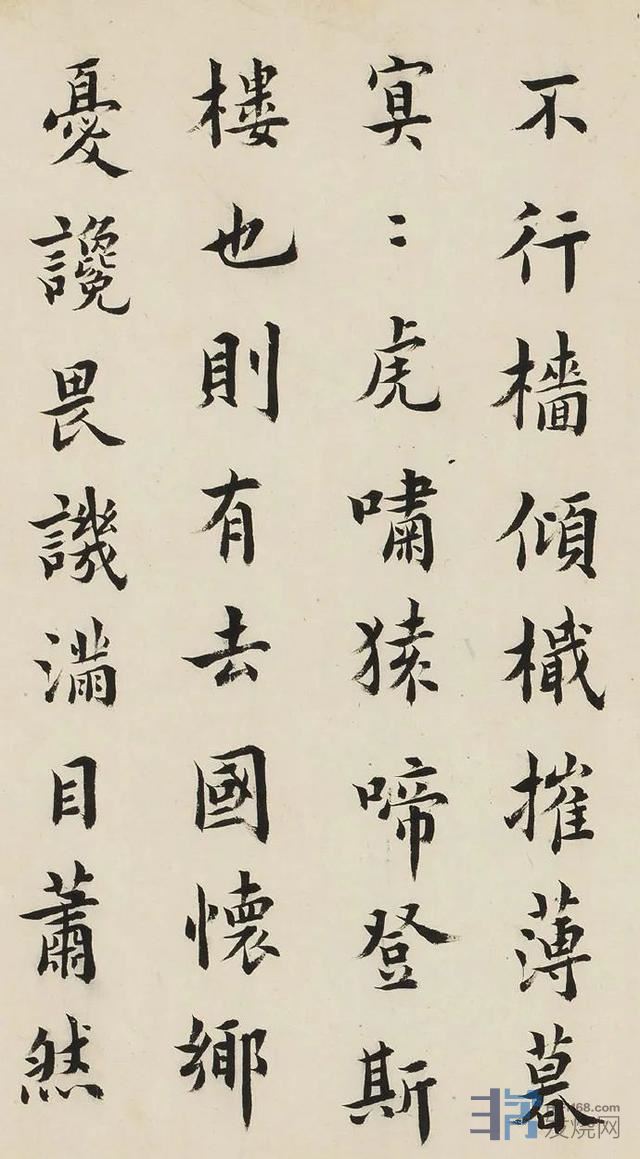 不行檣傾檝摧薄暮
冥〻虎嘯猿啼登斯
樓也則有去國懷鄉
憂讒畏譏滿目蕭然
发烧网